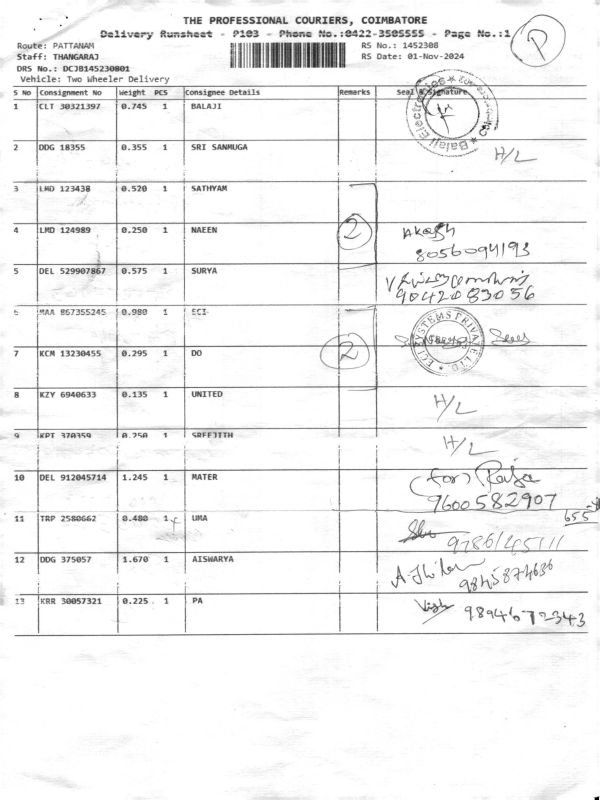 THE PROFESSIONAL COURIERS, COIMBATORE
Delivery Runsheet - P103 - Phone No.:0422-3505555 - Page No.:1
P
Route: PATTANAM
RS No.: 1452308
Staff: THANGARAJ
RS Date: 01-Nov-2024
DRS No.: DCJB145230801
Vehicle: Two Wheeler Delivery
S No Consignment No Weight PCS Consignee Details Remarks Seal & Signature
1 CLT 30321397 0.745 1 BALAJI
Balaji Electronics
2 DDG 18355 0.355 1 SRI SANMUGA H/L
3 LMD 123438 0.520 1 SATHYAM
4 LMD 124989 0.250 1 NAEEN 2 Akash
8056094193
5 DEL 529907867 0.575 1 SURYA
9042083056
6 MAA 867355245 0.980 1 ECI
ECI SYSTEMS PRIVATE LTD.
7 KCM 13230455 0.295 1 DO 2
8 KZY 6940633 0.135 1 UNITED H/L
9 KPT 370359 0.250 1 SREEJITH H/L
10 DEL 912045714 1.245 1 MATER (for) Raja
9600582907
655
11 TRP 2580662 0.480 1 UMA
9786145111
12 DDG 375057 1.670 1 AISWARYA
9845874636
13 KRR 30057321 0.225 1 PA
9894672343